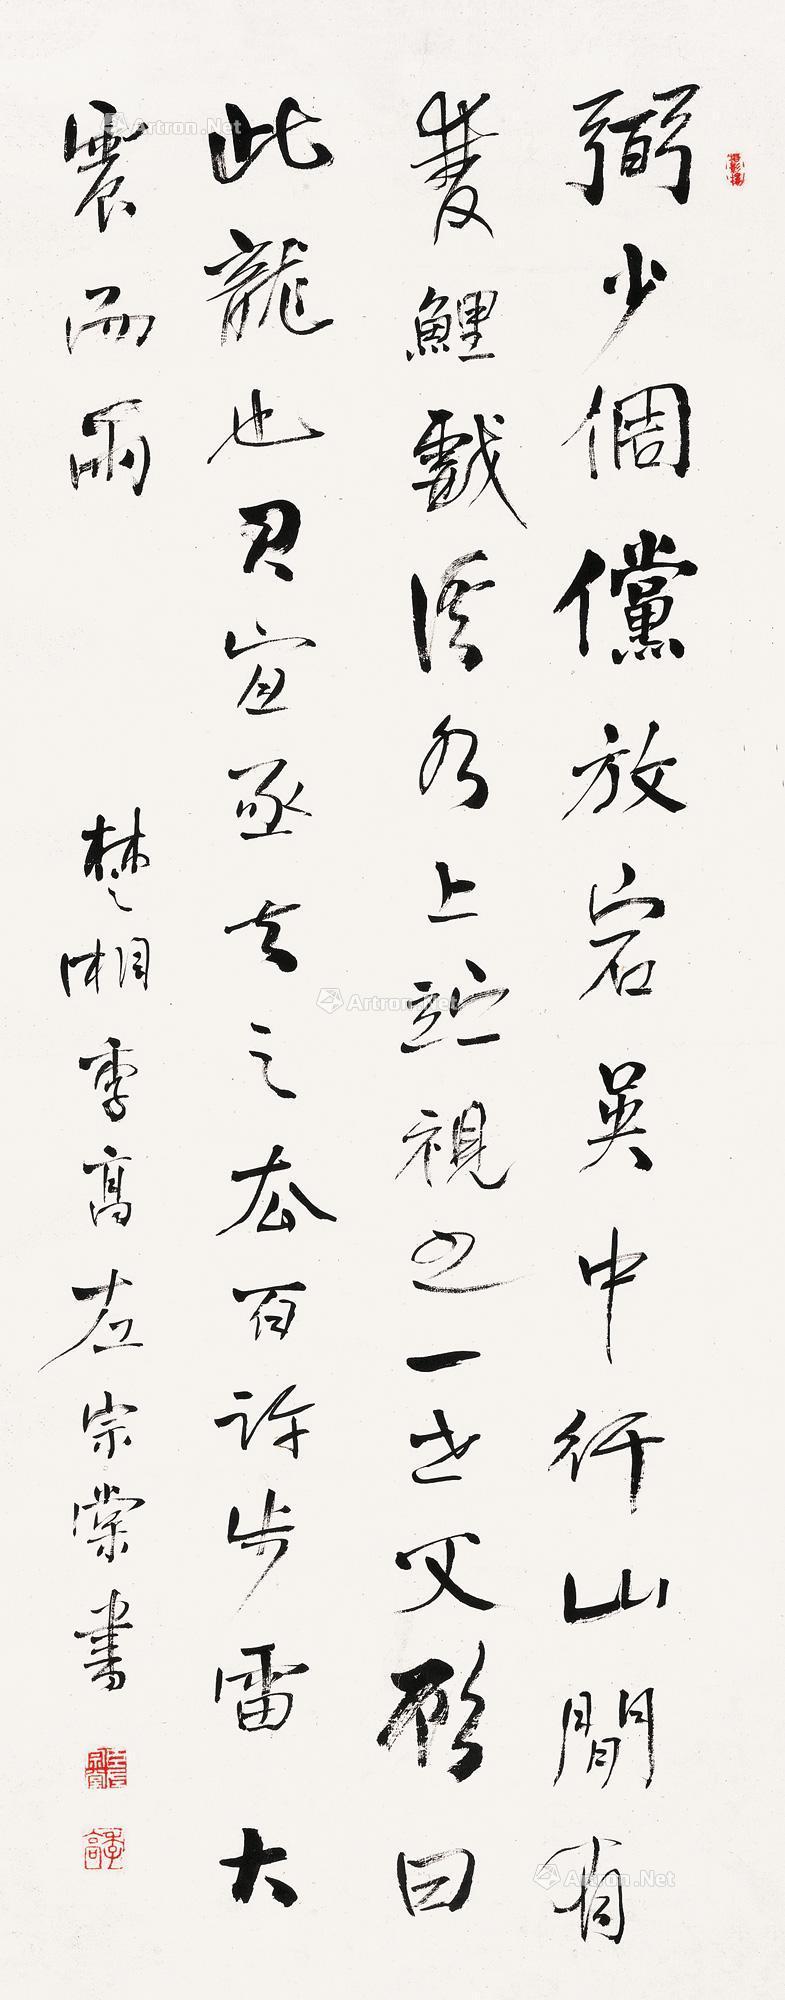 弼少倜儻放宕吳中行山間有
雙鯉戲溪水上竚視之一老父顧曰
此龍也君宜亟去之去百許步雷大
震而雨
楚湘季高左宗棠書
Artron.Net
Artron.Net
Artron.Net